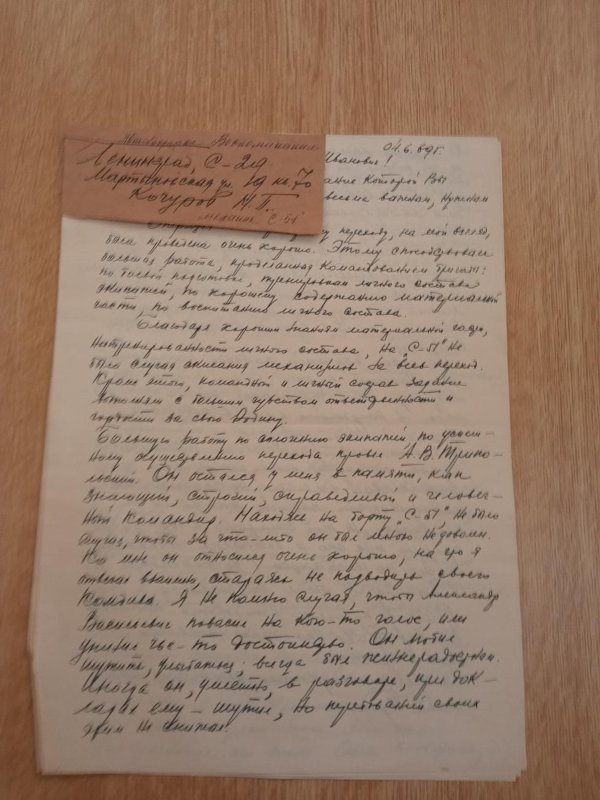 Воспоминания
Ленинград С-24
Мартыновская ул. 19 кв. 70
Кочуров М.П.
механик "С-51"
04.6.69г.
Иванович!
Которой Вы
весьма важном, нужном
переходу, на мой взгляд,
была проведена очень хорошо. Этому способствовала
большая работа, проделанная Командованием бригады:
по боевой подготовке, тренировкам личного состава
экипажей, по хорошему содержанию материальной
части, по воспитанию личного состава.
Благодаря хорошим знаниям материальной части,
натренированности личного состава, на "С-51" не
было случая механизмов за весь переход.
Кроме этого, командный и личный состав задание
выполнял с большим чувством ответственности и
гордости за свою Родину.
Большую работу по сплочению экипажей, по успеш-
ному осуществлению перехода провел А.В. Трипо-
льский. Он остался у меня в памяти, как
знающий, строгий, справедливый и человеч-
ный Командир. Находясь на борту "С-51", не было
случая, чтобы за что-либо он был мною недоволен.
Ко мне он относился очень хорошо, на что я
отвечал взаимно, стараясь не подводить своего
Комдива. Я не помню случая, чтобы Александр
Васильевич повысил на кого-то голос, или
унизил чье-то достоинство. Он любил
шутить, улыбаться; всегда был жизнерадостным.
Иногда он, уместно, в разговоре, при док-
ладах ему - шутил, но требований своих
этим не снижал.